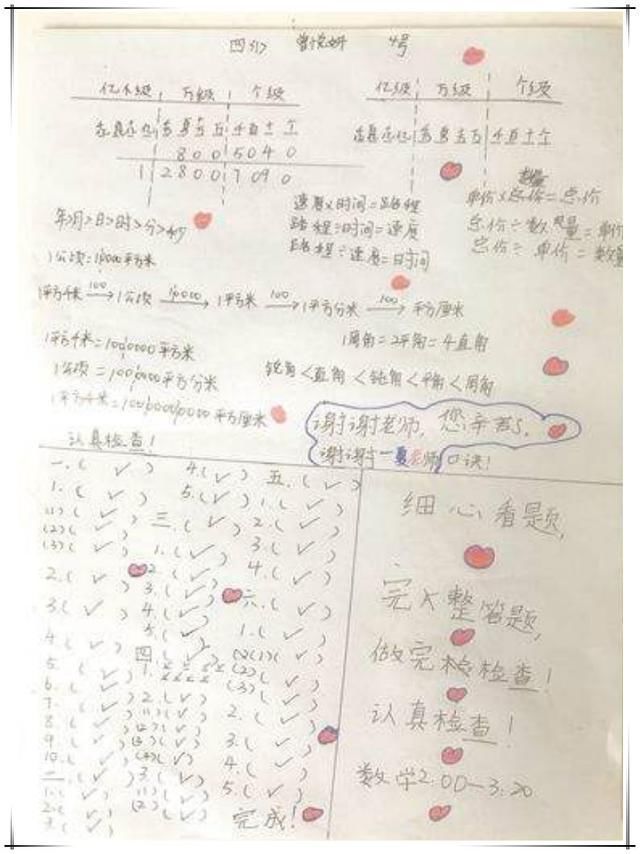 四(1) 4号
亿级 万级 个级
亿级 万级 个级
千百十亿 千百十万 千百十个
千百十亿 千百十万 千百十个
800 5040
1 2800 7090
速度×时间=路程
路程÷时间=速度
路程÷速度=时间
单价×总价=总价
总价÷数量=单价
总价÷单价=数量
年>月>日>时>分>秒
1公顷=10000平方米
1平方千米 100 1公顷 10000 1平方米 100 1平方分米 100 平方厘米
1平方千米=1000000平方米
1周角=2平角=4直角
1公顷=1000000平方分米
锐角<直角<钝角<平角<周角
1平方千米=10000000000平方厘米
谢谢老师,您辛苦了,
谢谢 老师口诀!
认真检查!
一.(✓) 4.(✓) 五.(✓)
1.(✓) 5.(✓) 1.(✓)
(1)(✓) 三.(✓) 2.(✓)
(2)(✓) 1.(✓) 3.(✓)
(3)(✓) 2.(✓) 4.(✓)
2.(✓) 3.(✓) 六.(✓)
3.(✓) 4.(✓) 1.(✓)
4.(✓) 5.(✓) (2)(1)(✓)
5.(✓) 四(✓) (2)(✓)
6.(✓) 1. (3)(✓)
7.(✓) 2.(✓) 2.(✓)
8.(✓) (1)(✓) 3.(✓)
9.(✓) (2)(✓) 4.(✓)
10.(✓) (3)(✓) 5.(✓)
二.(✓) (4)(✓)
1.(✓) 3.(✓)
2.(✓) (1)(✓)
3.(✓) (2)(✓)
完成!
细心看题,
完整答题,
做完检检查!
认真检查!
数学2:00-3:20